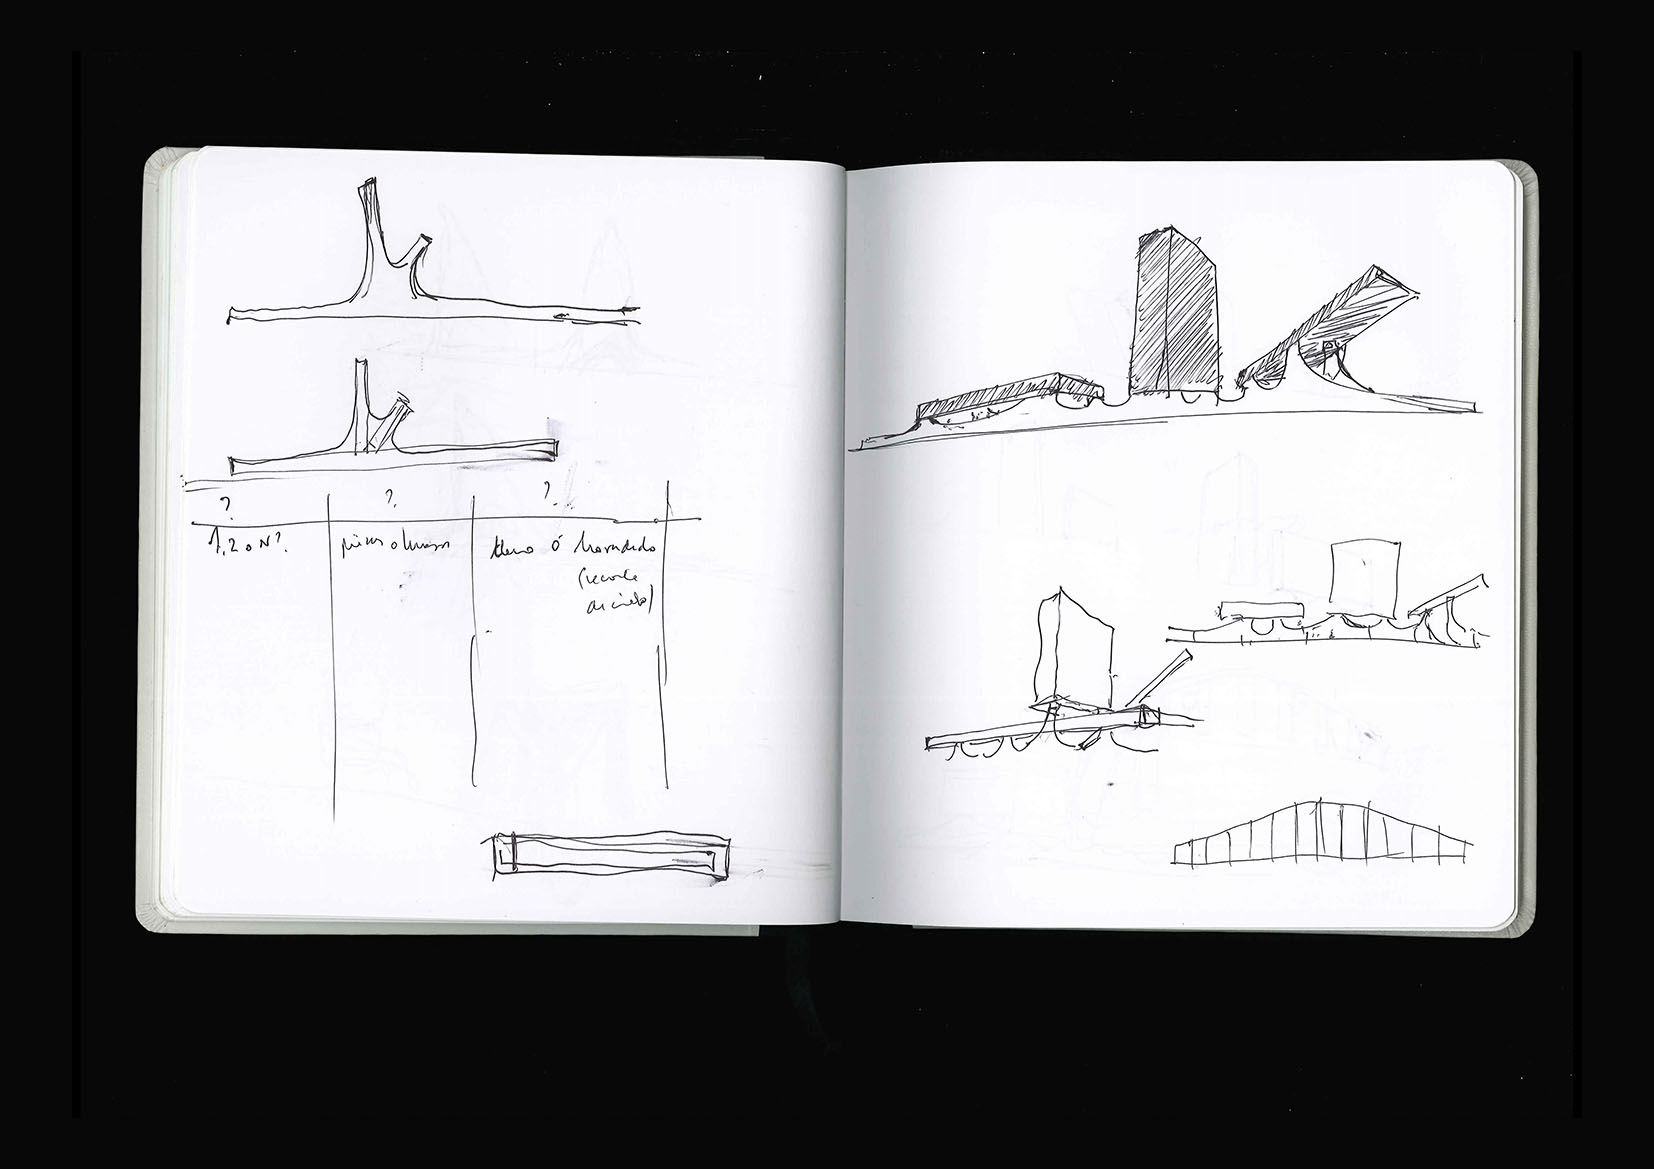 ? ? ?
1, 2 o N?. piezas o huecos lleno ó horadado
(recorte
de cielo)